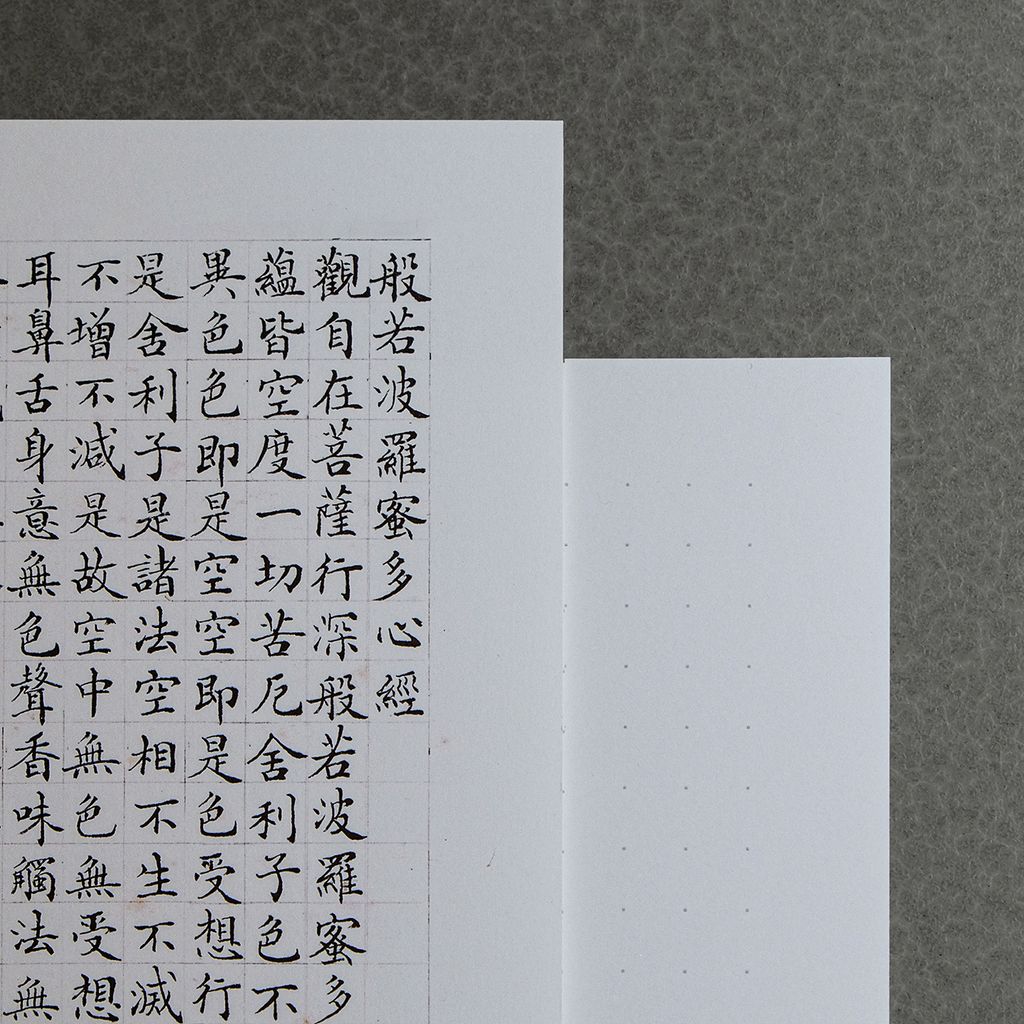 般若波羅蜜多心經
觀自在菩薩行深般若波羅蜜多
蘊皆空度一切苦厄舍利子色不
異色色即是空空即是色受想行
是舍利子是諸法空相不生不滅
不增不減是故空中無色無受想
耳鼻舌身意無色聲香味觸法無